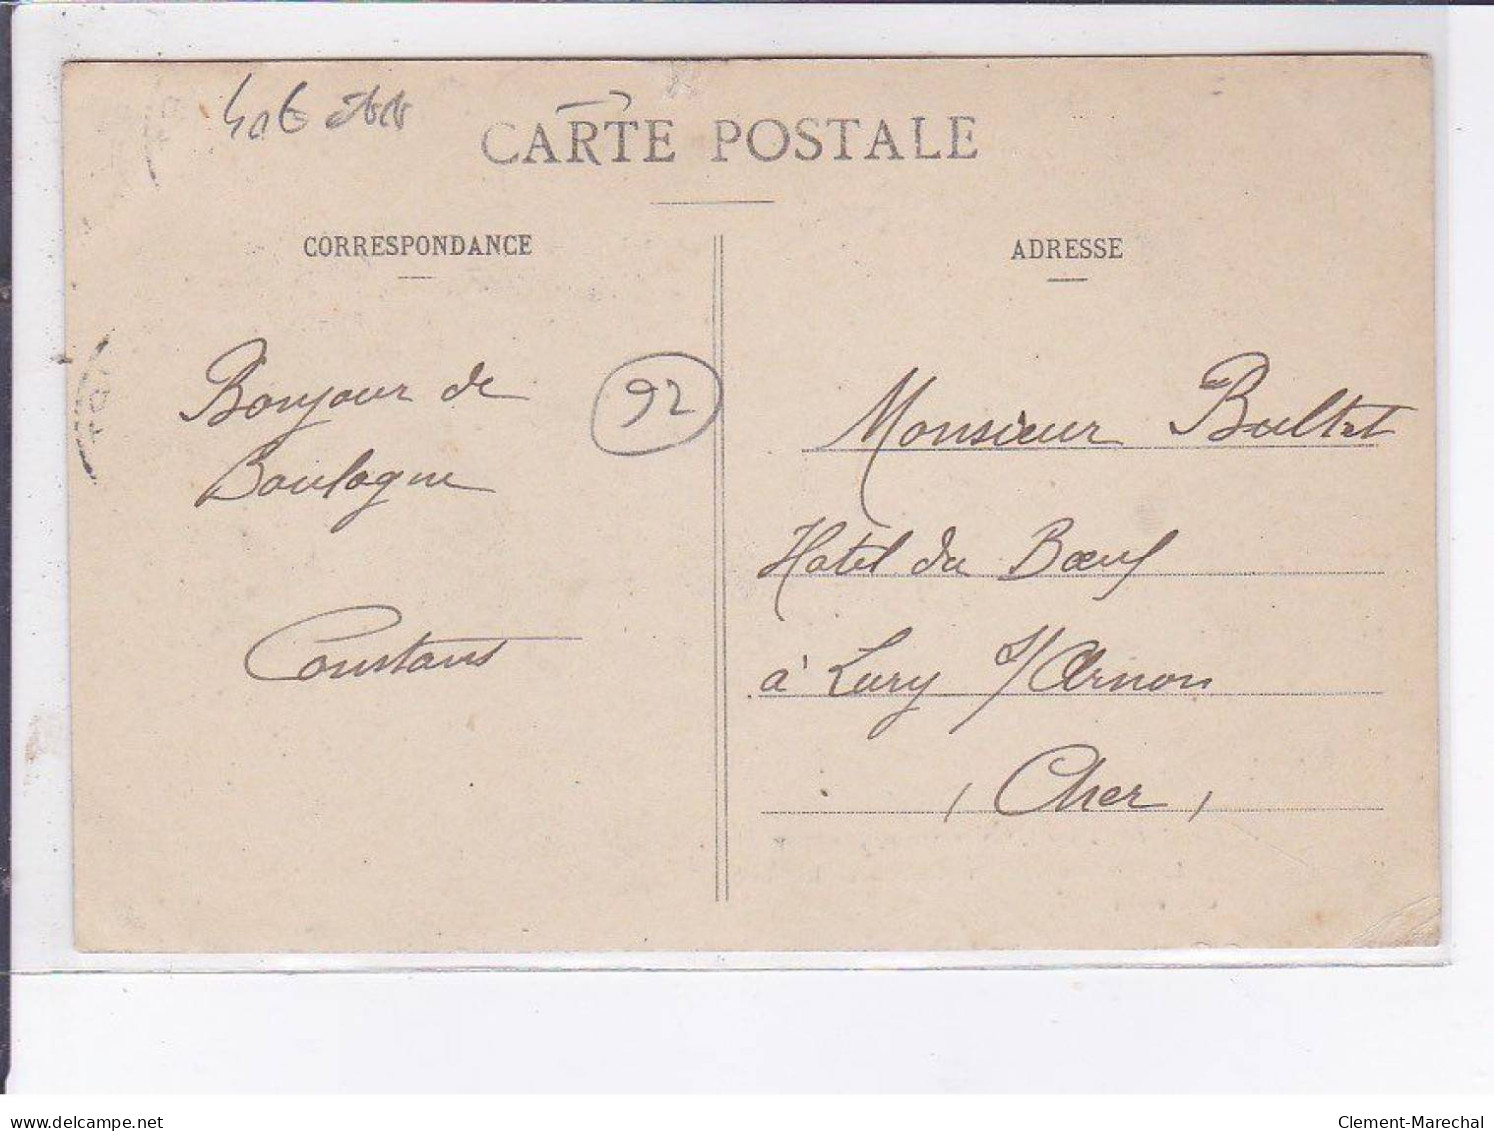 CARTE POSTALE
CORRESPONDANCE
ADRESSE
Bonjour de
Boulogne
Constans
92
Monsieur Bultet
Hotel du Bœuf
à Lury s/Arnon
(Cher)
delcampe.net
Clement-Marechal